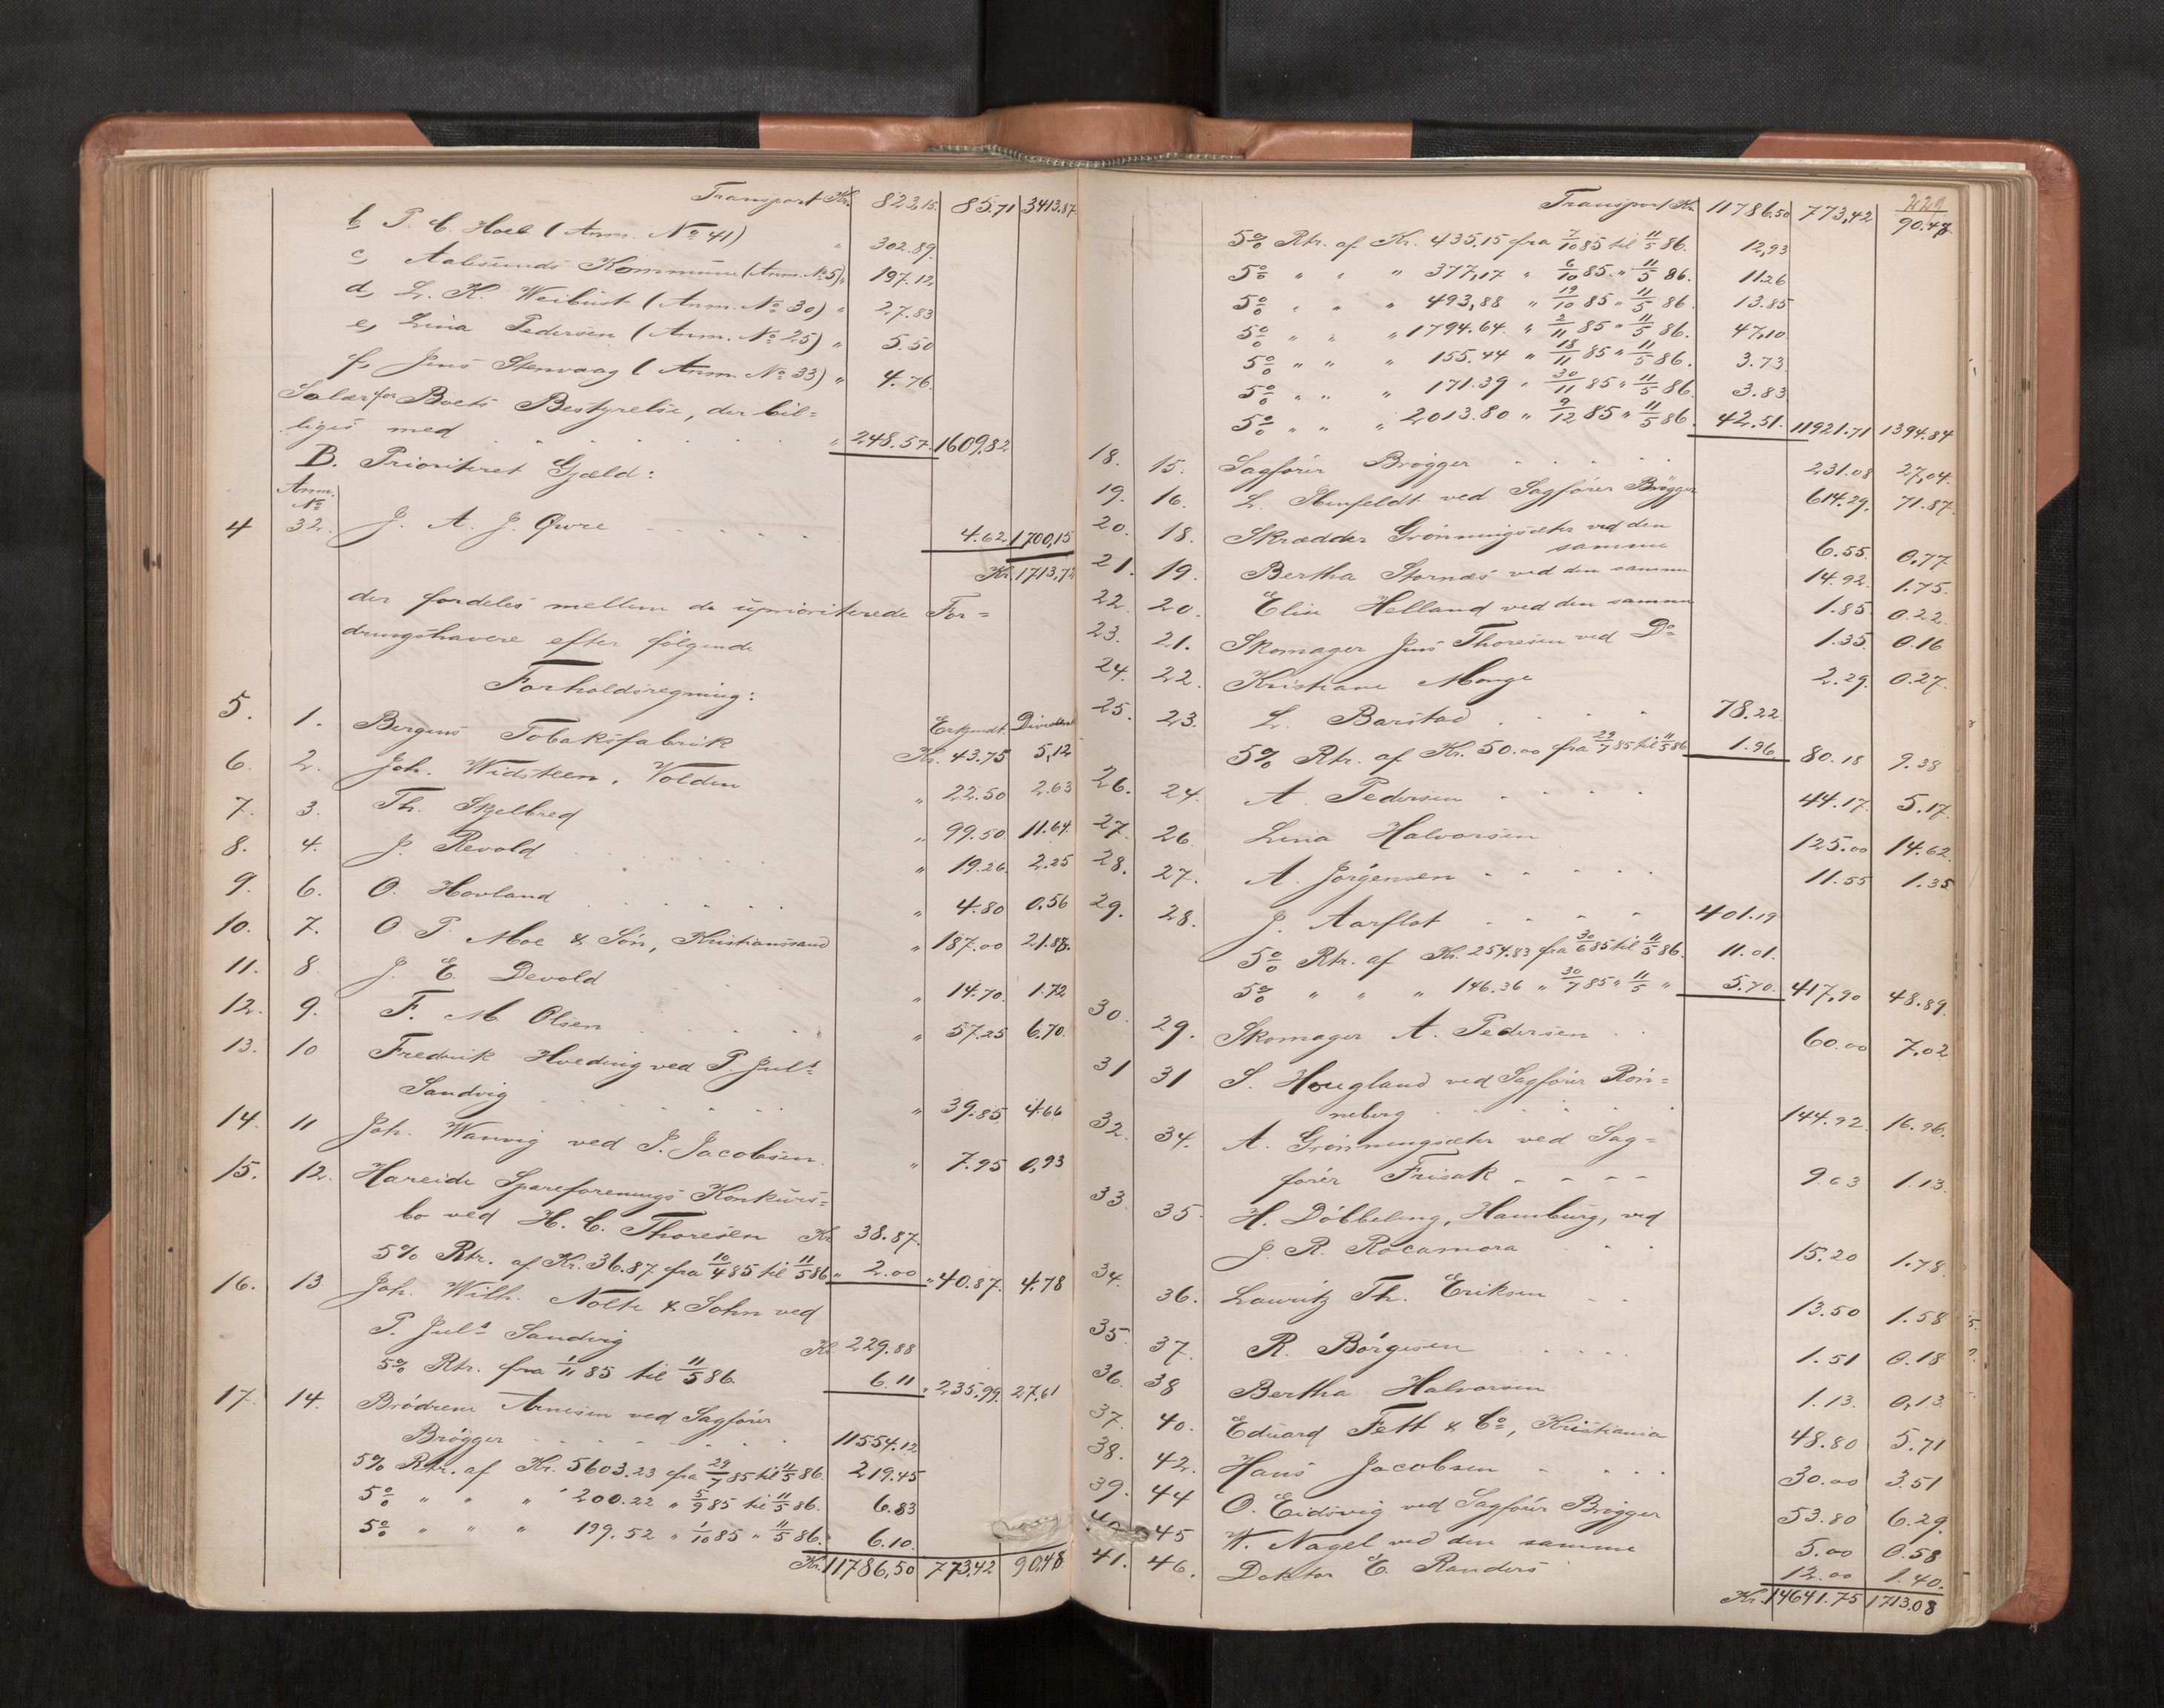 Transport Kr. 823,15. 85.71 3413.87
b, P. C. Hoel (Anm. No 41) " 302.89.
c, Aalesunds Kommune (Anm. No 5) " 197.12
d, L. K. Weibust (Anm. No 30) " 27.83
e, Lina Pedersen (Anm. No 25) " 5.50
f, Jens Stenvaag (Anm. No 33) " 4.76.
Salær for Boets Bestyrelse, der bil=
liges med " 248.57. 1609,82
B. Prioriteret Gjæld:
Anm. No
4 32. J. A. J. Qvre 4.62 1700,15
Kr. 1713,72
der fordeles mellem de uprioriterede For=
dringshavere efter følgende
Forholdsregning:
Erkjendt. Dividende
5. 1. Bergens Tobaksfabrik Kr. 43.75 5,12
6. 2. Joh. Widsteen, Volden " 22.50 2.63
7. 3. Th. Skjelbred " 99.50 11.64.
8. 4. J. Revold " 19.26. 2.25
9. 6. O. Hovland " 4.80 0,56
10. 7. O. P. Moe & Søn, Kristianssand " 187.00 21.88.
11. 8 J. E. Devold " 14.70. 1.72
12. 9. F. M. Olsen " 57.25 6,70.
13. 10 Fredrik Hveding ved P. Juls
Sandvig " 39.85 4.66
14. 11 Joh. Wannig ved J. Jacobsen. " 7.95 0,93
15. 12. Hareide Spareforenings Konkurs=
bo ved H. C. Thoresen Kr. 38.87.
5% Rtr. af Kr. 36.87 fra 10/4 85 til 11/5 86 " 2.00 " 40.87. 4.78
16. 13 Joh. Wilh. Nolte & Sohn ved
P. Juls Sandvig Kr. 229.88
5% Rtr. fra 1/11 85 til 11/5 86. 6.11 " 235.99. 27,61
17. 14. Brødrene Arnesen ved Sagfører
Brøgger 11554.12
5% Rtr. af Kr. 5603.23 fra 29/7 85 til 11/5 86. 219.45
5% " " " 200.22 " 5/9 85 til 11/5 86. 6.83
5% " " " 199.52 " 1/10 85 " 11/5 86. 6.10.
Kr. 11786,50 773,42 90,48
229
Transport Kr. 11786.50 773,42 90.48.
5% Rtr. af Kr. 435.15 fra 7/10 85 til 11/5 86. 12,93
5% " " " 377,17 " 6/10 85. " 11/5 86. 11.26
5% " " " 493,88 " 19/10 85 " 11/5 86. 13.85
5% " " " 1794.64. " 2/11 85 " 11/5 86. 47,10
5% " " " 155.44 " 18/11 85 " 11/5 86. 3.73.
5% " " " 171.39 " 30/11 85 " 11/5 86 3.83
5% " " " 2013.80 " 9/12 85 " 11/5 86. 42,51. 11921.71 1394.84
18. 15. Sagfører Brøgger 231.08 27,04.
19. 16. L. Ilenfeldt ved Sagfører Brøgger 614.29. 71.87.
20. 18. Skrædder Grønningsæter ved den
samme 6.55. 0,77
21. 19. Bertha Stornæs ved den samme 14.92. 1.75.
22. 20. Elise Helland ved den samme 1.85. 0.22.
23. 21. Skomager Jens Thoresen ved Do 1.35. 0.16
24. 22. Kristiane Mauge 2.29. 0.27.
25. 23. L. Barstad 78.22
5% Rtr. af Kr. 50.00 fra 29/7 85 til 11/5 86 1.96. 80.18 9.38
26. 24. A. Pedersen 44.17. 5.17.
27. 26 Lina Halvorsen 125.00 14.62.
28. 27. A. Jørgensen 11.55 1.35
29. 28. J. Aarflot 401.19
5% Rtr. af Kr. 254.83 fra 30/6 85 til 11/5 86. 11.01.
5% " " " 146.36 " 30/7 85 " 11/5 " 5.70. 417,90 48.89.
30. 29. Skomager A. Pedersen 60.00 7,02
31 31 S. Hougland ved Sagfører Røn=
neberg 144.92. 16.96.
32. 34. A. Grønningsæter ved Sag=
fører Frisak 9.63 1.13.
33. 35. H. Döbbeling, Hamburg, ved
J. R. Rocamora 15.20 1.78.
34. 36. Lauritz Th. Eriksen 13.50 1.58
35. 37. R. Børgesen 1.51 0.18
36. 38 Bertha Halvorsen 1.13. 0,13.
37. 40. Eduard Fett & Co, Kristiania 48.80 5.71
38. 42. Hans Jacobsen 30.00 3.51
39. 44 O. Eidsvig ved Sagfører Brøgger 53.80 6.29.
40 45 W. Nagel ved den samme 5.00 0.58
41. 46. Doktor E. Randers 12.00 1.40.
Kr. 14641.75 1713,08